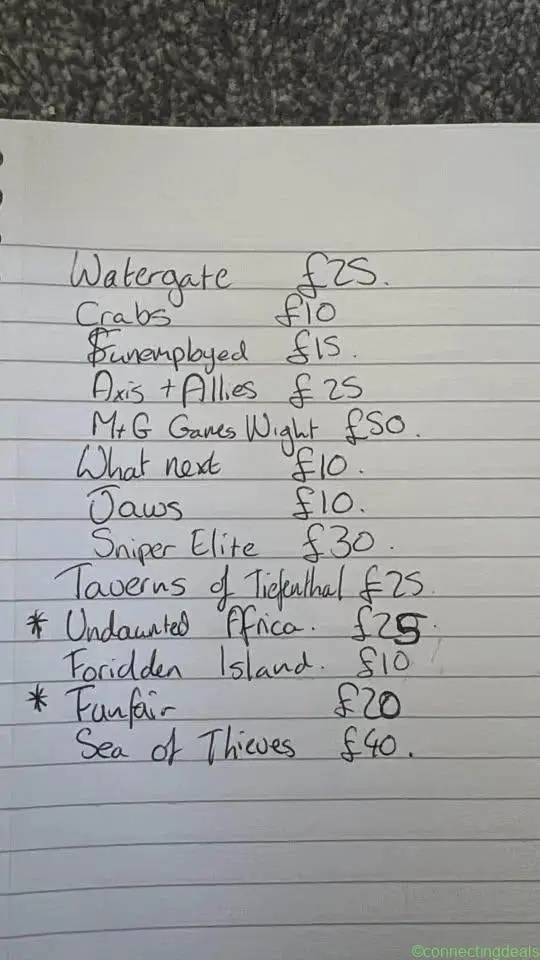 Watergate £25.
Crabs £10
Funemployed £15.
Axis + Allies £25
M+G Games Wight £50.
What next £10.
Jaws £10.
Sniper Elite £30.
Taverns of Tiefenthal £25
* Undaunted Africa. £25.
Foridden Island. £10
* Funfair £20
Sea of Thieves £40.
©connectingdeals